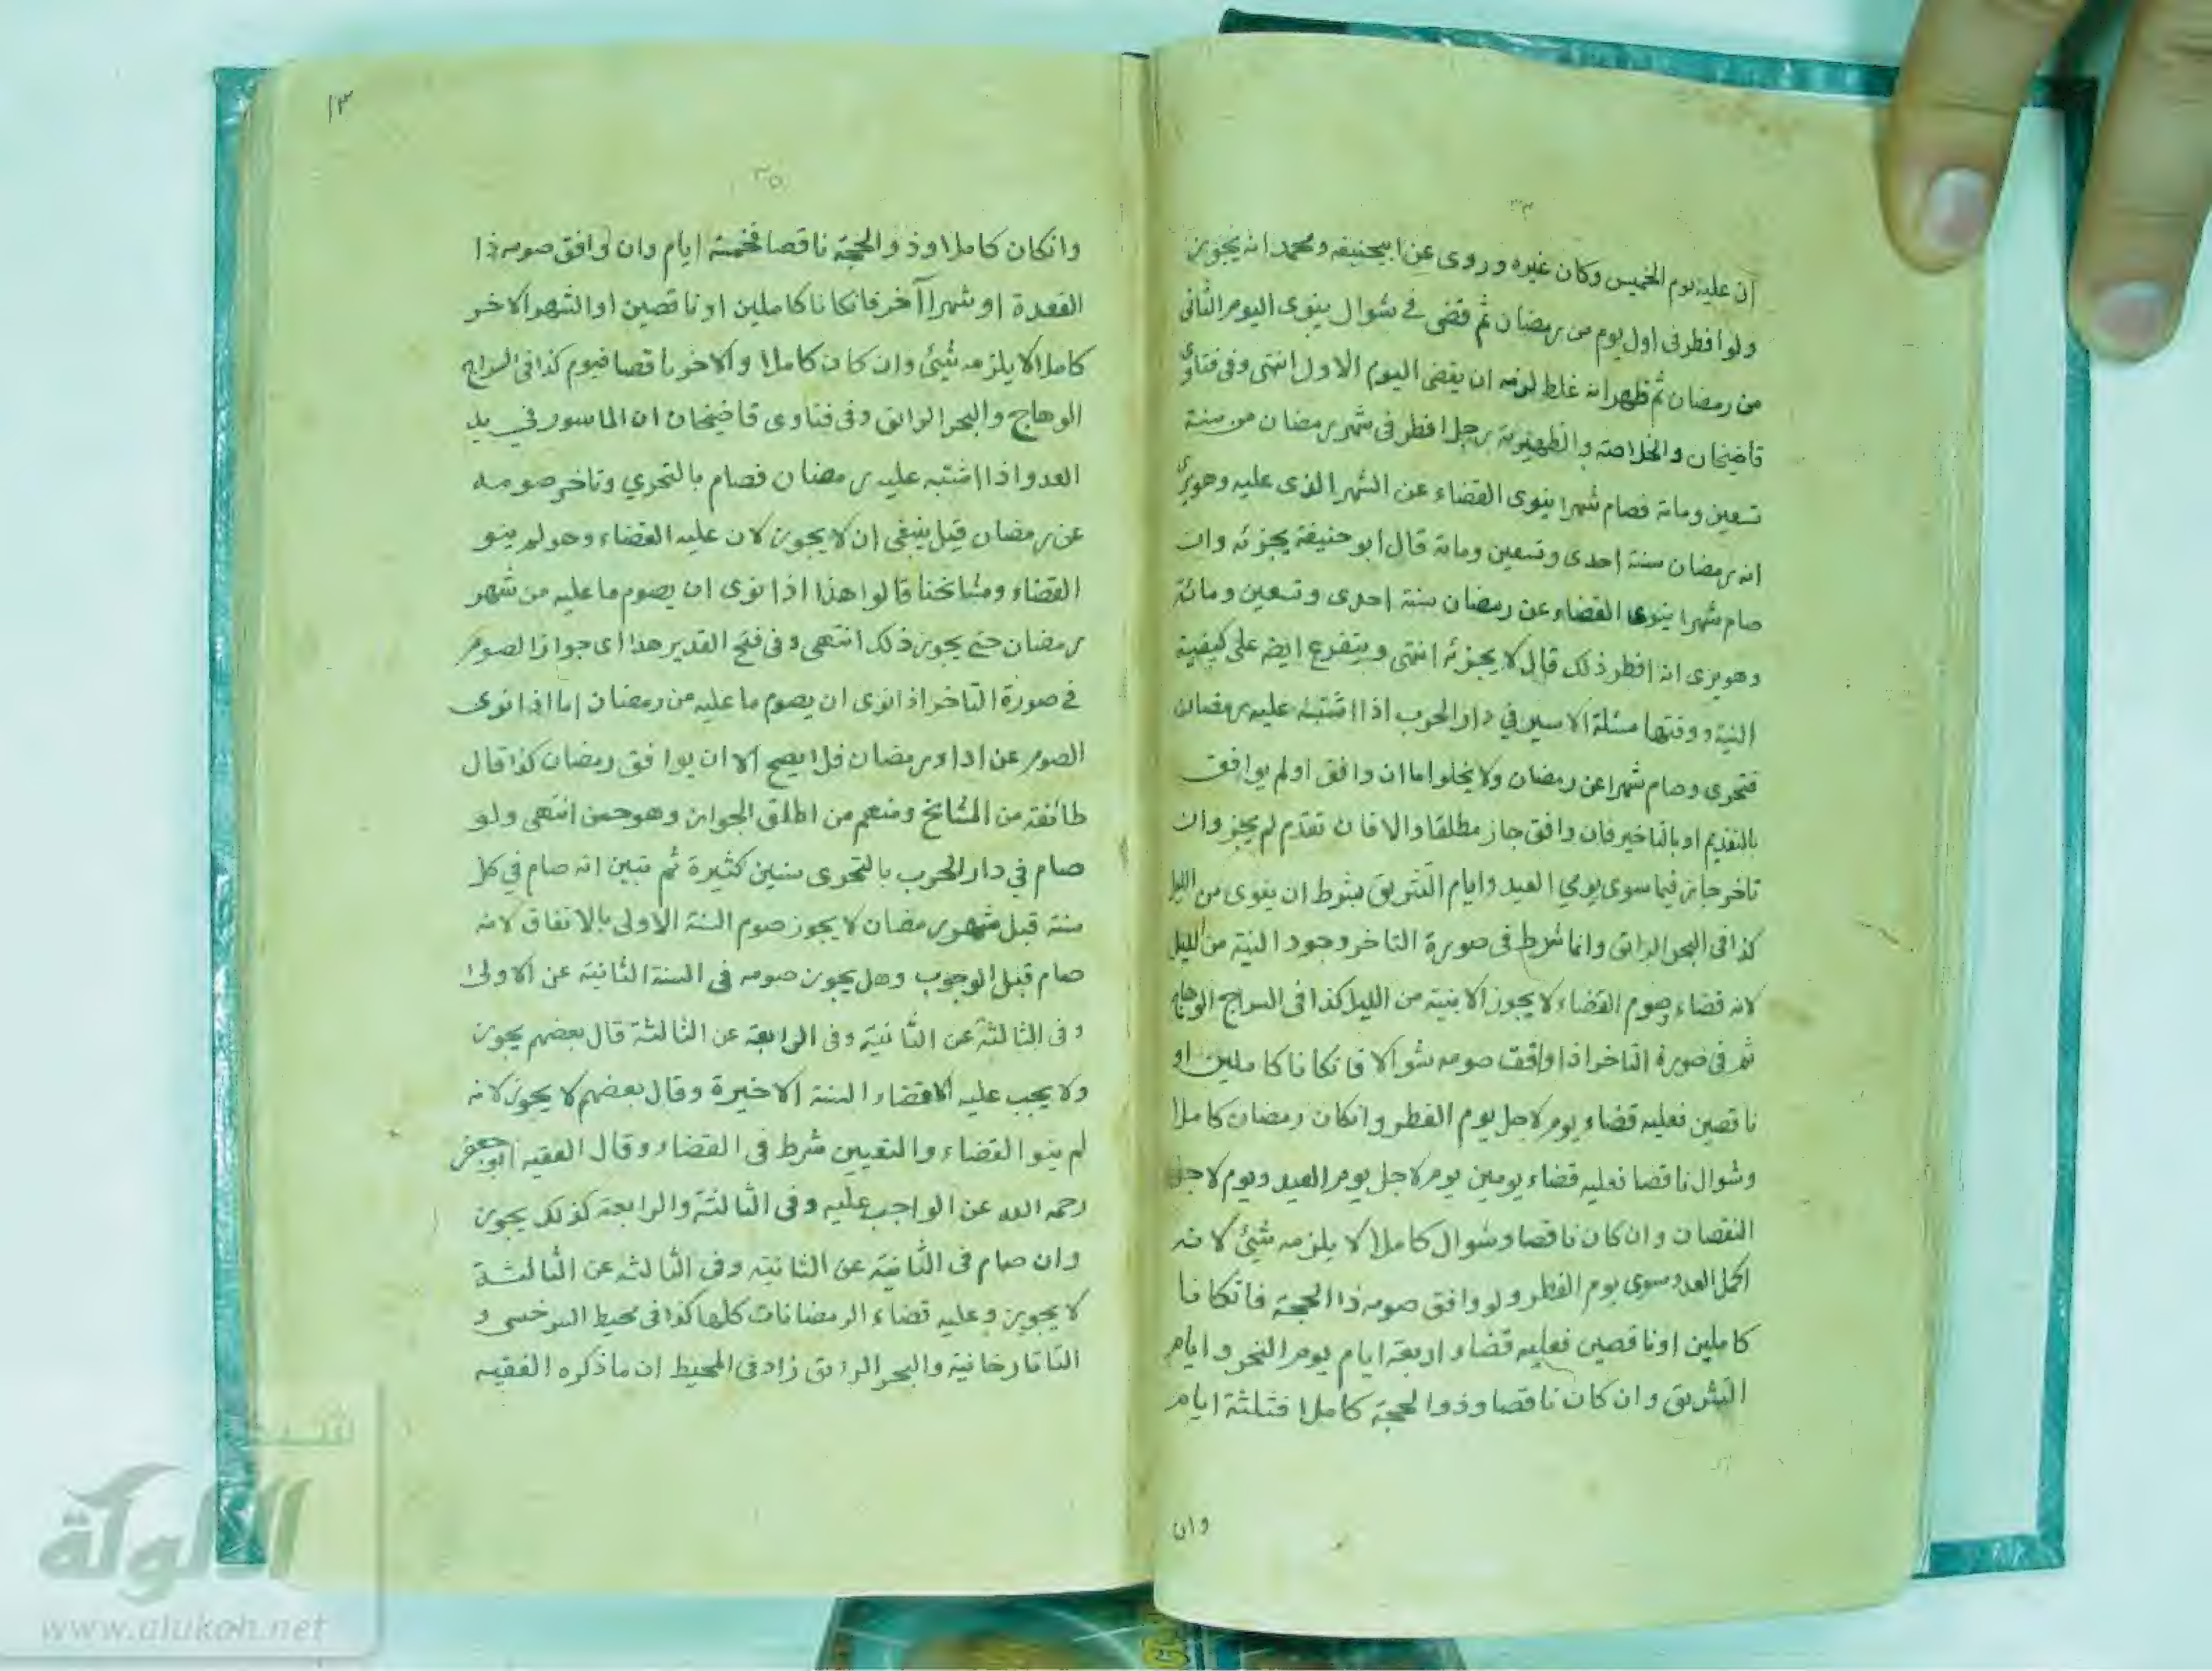 ان عليه يوم الخميس وكان غيره وروى عن ابيحنيفه ومحمد انه يجوز
ولو افطر فى اول يوم من رمضان ثم قضى فى شوال ينوى اليوم الثانى
من رمضان ثم ظهر انه غلط لزمه ان يقضى اليوم الاول انتهى وفى فتاوى
قاضيخان والخلاصة والظهيرية رجل افطر فى شهر رمضان من سنة
تسعين ومائة فصام شهرا ينوى القضاء عن الشهر الذى عليه وهو يرى
انه رمضان سنة احدى وتسعين ومائة قال ابو حنيفة يجزئه وان
صام شهرا ينوى القضاء عن رمضان سنة احدى وتسعين ومائة
وهو يرى انه افطر ذلك قال لا يجزئه انتهى ويتفرع ايضه على كيفية
النية ووقتها مسئلة الاسير في دار الحرب اذا اشتبه عليه رمضان
فتحرى وصام شهرا عن رمضان ولا يخلوا ما ان وافق او لم يوافق
بالتقديم او بالتاخير فان وافق جاز مطلقا والا فان تقدم لم يجز وان
تاخر جاز فيما سوى يومي العيد وايام التشريق بشرط ان ينوى من الليل
كذا فى البحر الرائق وانما شرط فى صورة التاخر وجود النية من الليل
لانه قضاء وصوم القضاء لا يجوز الا بنية من الليل كذا فى السراج الوهاج
ثم فى صورة التاخر اذا وافقت صومه شوالا فانكانا كاملين او
ناقصين فعليه قضاء يوم لاجل يوم الفطر وانكان رمضان كاملا
وشوال ناقصا فعليه قضاء يومين يوم لاجل يوم العيد ويوم لاجل
النقصان وان كان ناقصا وشوال كاملا لا يلزمه شئ لانه
اكمل العدد سوى يوم الفطر ولو وافق صومه ذا الحجة فانكانا
كاملين او ناقصين فعليه قضاء اربعة ايام يوم النحر وايام
التشريق وان كان ناقصا وذو الحجة كاملا فثلثة ايام
وان
١٣
٣٥
وانكان كاملا وذو الحجة ناقصا فخمسة ايام وان وافق صومه ذا
القعدة او شهرا آخر فانكانا كاملين او ناقصين او الشهر الاخر
كاملا لا يلزمه شئ وان كان كاملا والاخر ناقصا فيوم كذا فى السراج
الوهاج والبحر الرائق وفى فتاوى قاضيخان ان الماسور في يد
العدو اذا اشتبه عليه رمضان فصام بالتحري وتاخر صومه
عن رمضان قيل ينبغى ان لا يجوز لان عليه القضاء وهو لم ينو
القضاء ومشايخنا قالوا هذا اذا نوى ان يصوم ما عليه من شهر
رمضان حتى يجوز ذلك انتهى وفى فتح القدير هذا اى جواز الصوم
فى صورة التاخر اذا نوى ان يصوم ما عليه من رمضان اما اذا نوى
الصوم عن اداء رمضان فلا يصح الا ان يوافق رمضان كذا قال
طائفة من المشايخ ومنعم من اطلق الجواز وهو حسن انتهى ولو
صام في دار الحرب بالتحرى سنين كثيرة ثم تبين انه صام في كل
سنة قبل شهر رمضان لا يجوز صوم السنة الاولى بالاتفاق لانه
صام قبل الوجوب وهل يجوز صومه فى السنة الثانية عن الاولى
وفى الثالثة عن الثانية وفى الرابعة عن الثالثة قال بعضهم يجوز
ولا يجب عليه الا قضاء السنة الاخيرة وقال بعضهم لا يجوز لانه
لم ينوا القضاء والتعيين شرط فى القضاء وقال الفقيه ابو جعفر
رحمه الله عن الواجب عليه وفى الثالثة والرابعة كذلك يجوز
وان صام فى الثانية عن الثانية وفى الثالثه عن الثالثة
لا يجوز وعليه قضاء الرمضانات كلها كذا فى محيط السرخسى و
التاتارخانية والبحر الرائق زاد فى المحيط ان ما ذكره الفقيه
شبكة
الألوكة
www.alukah.net